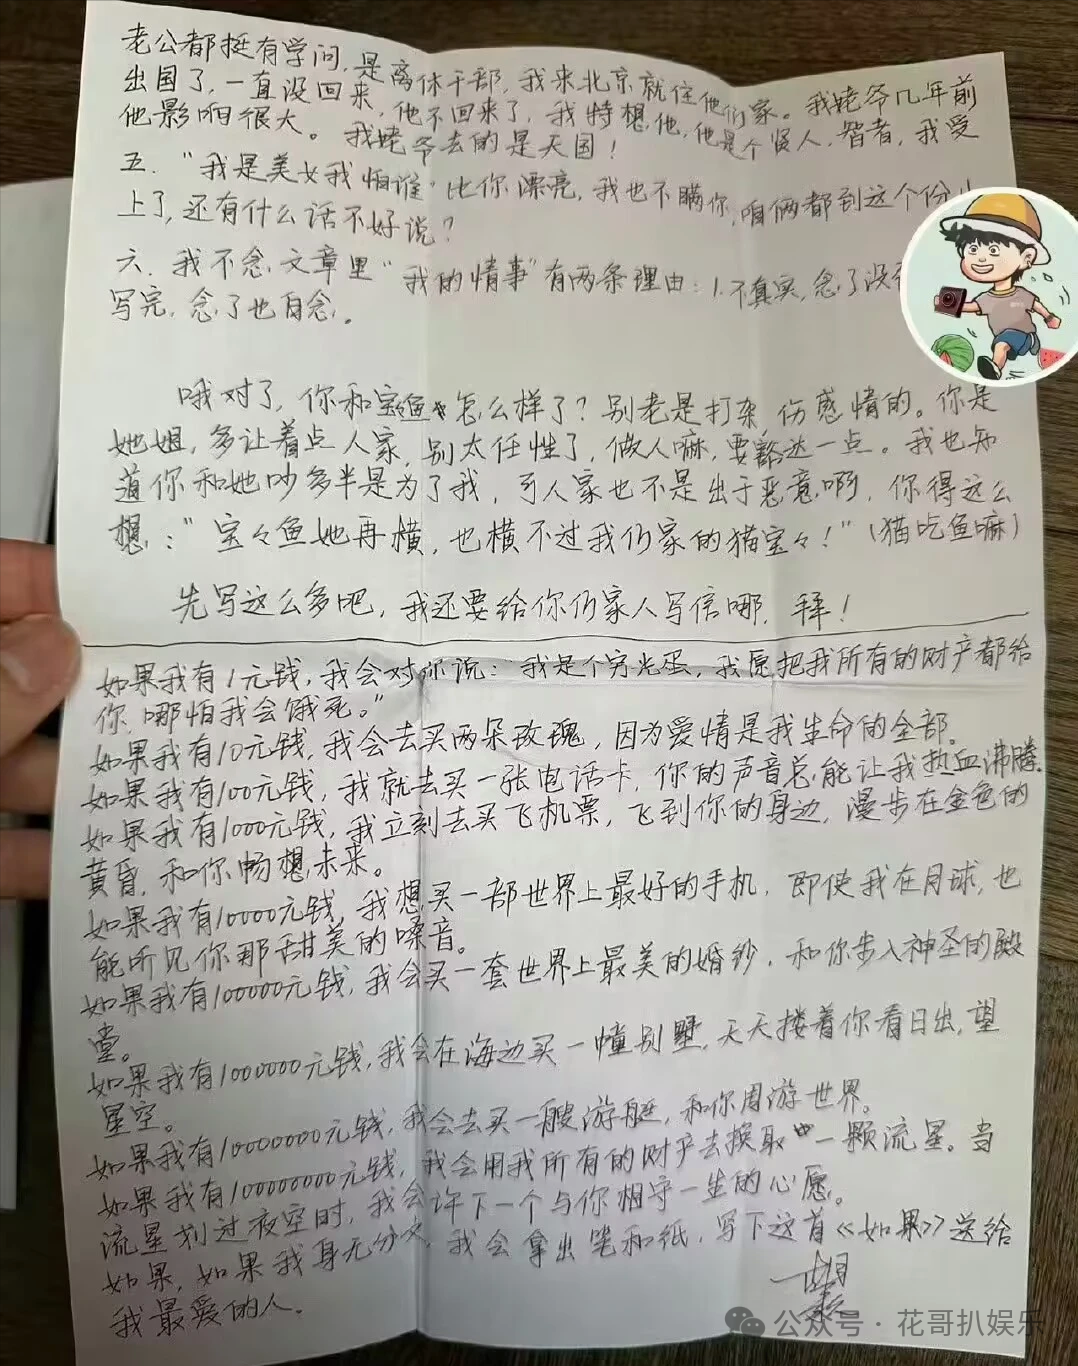 老公都挺有学问,是离休干部,我来北京就住他们家。我姥爷几年前
出国了,一直没回来,他不回来了,我特想他,他是个贤人,智者,我受
他影响很大。我姥爷去的是天国!
五."我是美女我怕谁"比你漂亮,我也不瞒你,咱俩都到这个份
上了,还有什么话不好说?
六.我不念文章里"我的情事"有两条理由:1.不真实,念了没
写完,念了也白念。
哦对了,你和宝鱼怎么样了?别老是打杂,伤感情的。你是
她姐,多让着点人家,别太任性了,做人嘛,要豁达一点。我也知
道你和她吵多半是为了我,可人家也不是出于恶意啊,你得这么
想:"宝々鱼她再横,也横不过我们家的猫宝々!"(猫吃鱼嘛)
先写这么多吧,我还要给你们家人写信哪,拜!
如果我有1元钱,我会对你说:"我是个穷光蛋,我愿把我所有的财产都给
你,哪怕我会饿死。"
如果我有10元钱,我会去买两朵玫瑰,因为爱情是我生命的全部。
如果我有100元钱,我就去买一张电话卡,你的声音总能让我热血沸腾。
如果我有1000元钱,我立刻去买飞机票,飞到你的身边,漫步在金色的
黄昏,和你畅想未来。
如果我有10000元钱,我想买一部世界上最好的手机,即使我在月球,也
能听见你那甜美的嗓音。
如果我有100000元钱,我会买一套世界上最美的婚钞,和你步入神圣的殿
堂。
如果我有1000000元钱,我会在海边买一幢别墅,天天搂着你看日出,望
星空。
如果我有10000000元钱,我会去买一艘游艇,和你周游世界。
如果我有100000000元钱,我会用我所有的财产去换取一颗流星。当
流星划过夜空时,我会许下一个与你相守一生的心愿。
如果,如果我身无分文,我会拿出笔和纸,写下这首《如果》送给
我最爱的人。
公众号·花哥扒娱乐